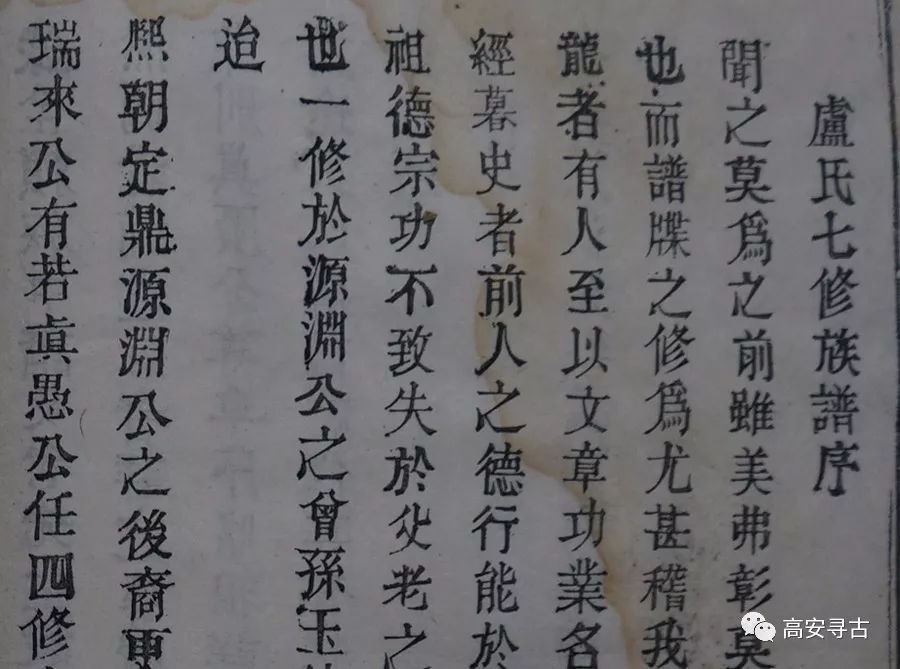 盧氏七修族譜序
聞之莫爲之前雖美弗彰莫
也而譜牒之修爲尤甚稽我
龍者有人至以文章功業名
經暮史者前人之德行能於
祖德宗功不致失於父老之
世一修於源淵公之曾孫玉
迨
熙朝定鼎源淵公之後裔更
瑞來公有若眞愚公任四修
高安寻古